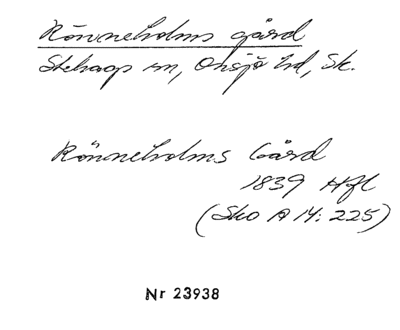 Rönneholms gård
Stehaap sn, Onsjö hd, Sk.
Rönneholms Gård
1839 Hfl
(Sko A 14: 225)
Nr 23938